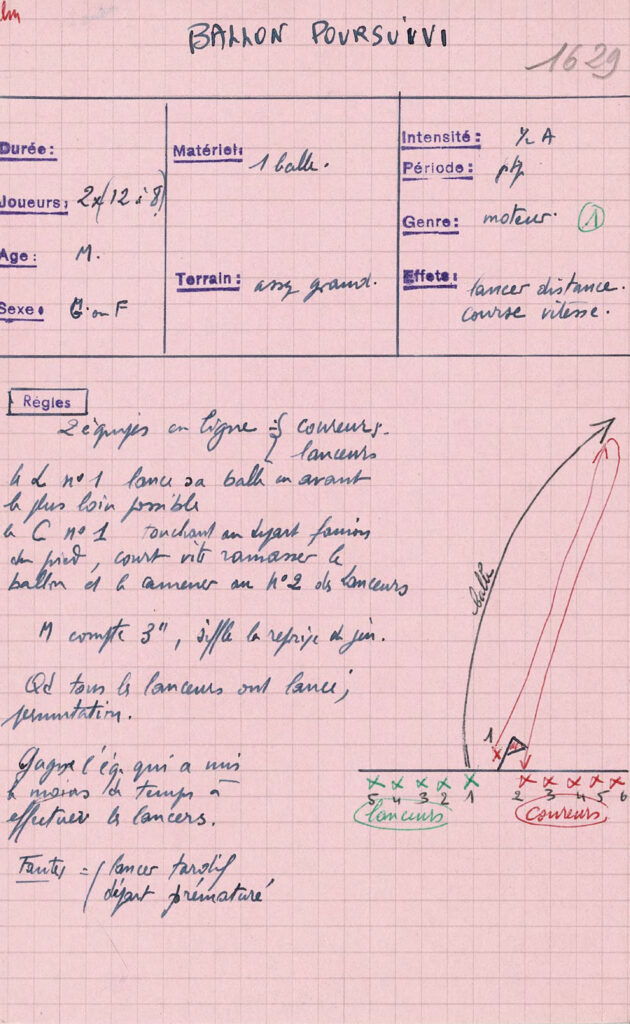 lm
BALLON POURSUIVI
1629
Durée:
Joueurs: 2x(12 à 8)
Age: M.
Sexe: G. ou F
Matériel: 1 balle.
Terrain: assez grand.
Intensité: ½ A
Période: ptf
Genre: moteur. 1
Effets: lancer distance.
course vitesse.
Règles
2 équipes en ligne = { coureurs.
lanceurs
le L nº 1 lance sa balle en avant
le plus loin possible
le C nº 1 touchant au départ fanion
du pied, court vite ramasser le
ballon et le ramener au nº 2 des Lanceurs
M compte 3", siffle la reprise du jeu.
Qd tous les lanceurs ont lancé,
permutation.
Gagne l'éq. qui a mis
le moins de temps à
effectuer les lancers.
Fautes = ( lancer tardif
départ prématuré
balle
1
5 4 3 2 1 2 3 4 5 6
lanceurs coureurs